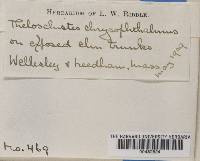 HERBARIUM OF L. W. RIDDLE.
Theloschistes chrysophthalmus
on exposed elm trunks
Wellesley & Needham, Mass.
1909
No. 469
THE HARVARD UNIVERSITY HERBARIA